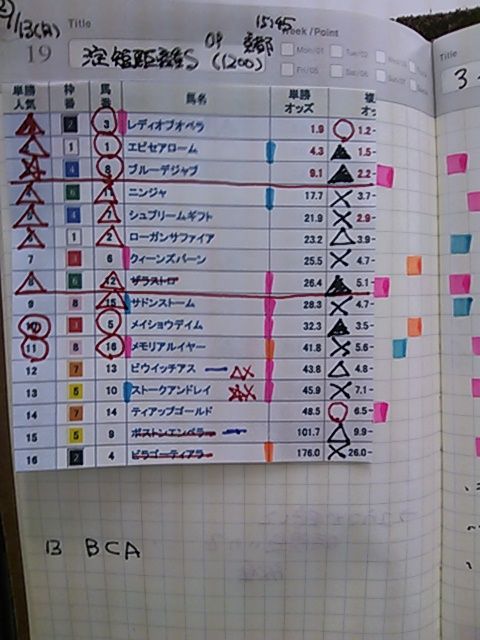 /13(日) 15:45
Title Week/Point Title
19 淀短距離S OP 京都 (1200) 3
単勝人気 枠番 馬番 馬名 単勝オッズ 複オ
2 3 レディオブオペラ 1.9 1.2-
1 1 エピセアローム 4.3 1.5-
4 8 ブルーデジャブ 9.1 2.2-
6 ニンジャ 17.7 3.7
4 7 シュプリームギフト 21.9 2.9-
1 2 ローガンサファイア 23.2 3.9-
7 3 6 クィーンズバーン 25.5 4.7-
8 6 12 ザラストロ 26.4 5.1
9 8 15 サドンストーム 28.3 4.7-
10 3 5 メイショウデイム 32.3 3.5-
11 8 16 メモリアルイヤー 41.8 5.6
12 7 13 ビウイッチアス 43.8 4.8-
13 5 10 ストークアンドレイ 45.9 7.1-
14 7 14 ティアップゴールド 48.5 6.5-
15 5 9 ボストンエンペラー 101.7 9.9-
16 2 4 ビラゴーティアラ 176.0 26.0-
13 BCA